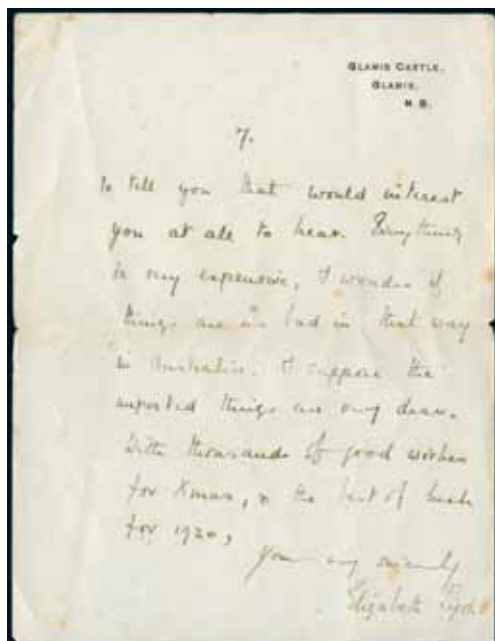 GLAMIS CASTLE,
GLAMIS.
N. B.
7.
to tell you that would interest
you at all to hear. Everything
is very expensive, I wonder if
things are as bad in that way
in Australia. I suppose the
imported things are very dear.
With thousands of good wishes
for Xmas, & the best of luck
for 1920,
your very sincerely
Elizabeth Lyon